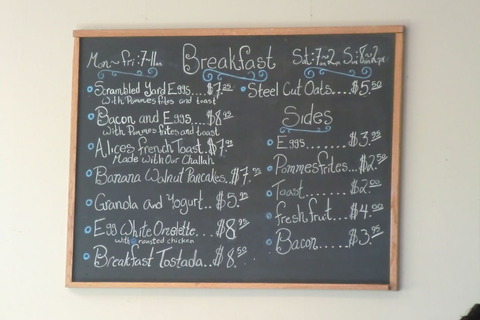 Mon-Fri: 7-11am
Breakfast
Sat: 7am-2pm Su: 8am-2pm
Scrambled Yard Eggs... $7.25
With Pommes frites and toast
Bacon and Eggs.... $8.95
With Pommes frites and toast
Alices french Toast. $7.95
Made with Our Challah
Banana Walnut Pancakes. $7.95
Granola and Yogurt... $5.95
Egg White Omelette... $8.95
with roasted chicken
Breakfast Tostada... $8.50
Steel Cut Oats.... $5.50
Sides
Eggs....... $3.95
Pommesfrites... $2.50
Toast....... $2.00
fresh fruit.... $4.00
Bacon...... $3.95